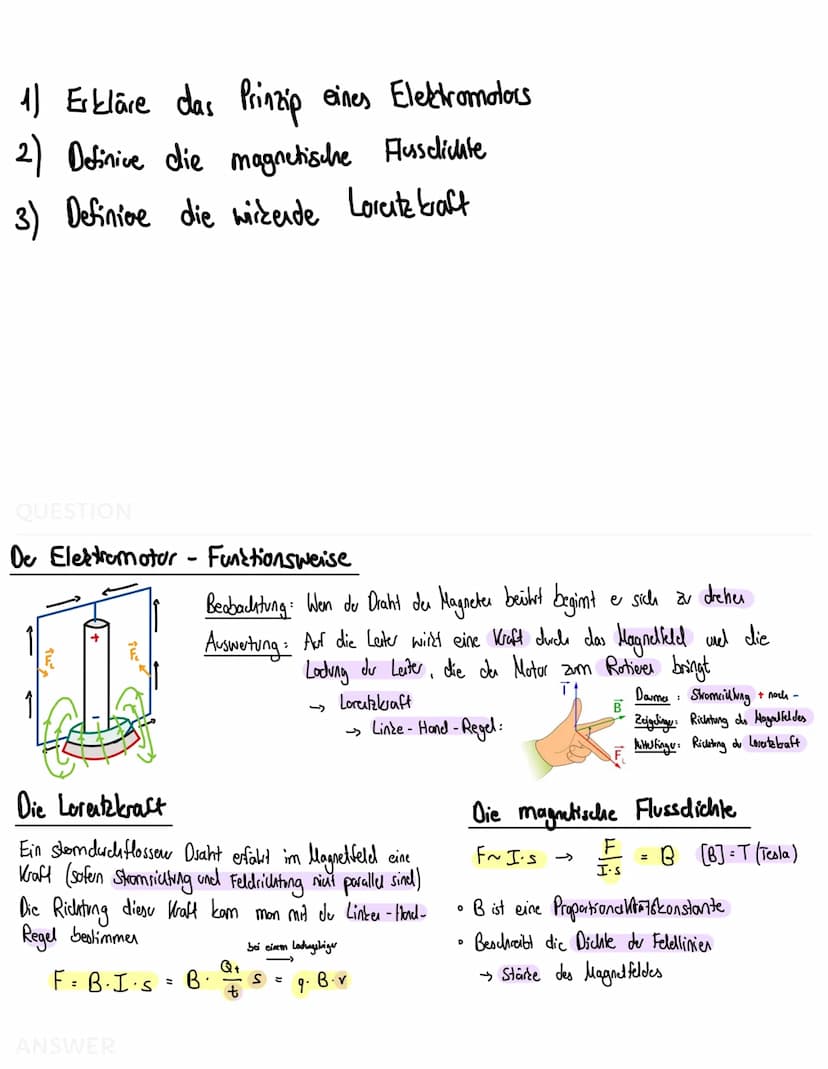 1) Erkläre das Prinzip eines Elektromotors
2) Definiere die magnetische Flussdichte
3) Definiere die wirkende Lorentzkraft
QUESTION
Der Elektromotor - Funktionsweise
Beobachtung: Wenn der Draht den Magneten berührt beginnt er sich zu drehen
Auswertung: Auf die Leiter wirkt eine Kraft durch das Magnetfeld und die
Ladung der Leiter, die den Motor zum Rotieren bringt
→ Lorentzkraft
→ Linke-Hand-Regel:
Daumen: Stromrichtung + nach -
Zeigefinger: Richtung des Magnetfeldes
Mittelfinger: Richtung der Lorentzkraft
I
B
F_L
+
-
F_L
F_L
Die Lorentzkraft
Ein stromdurchflossener Draht erfährt im Magnetfeld eine
Kraft (sofern Stromrichtung und Feldrichtung nicht parallel sind)
Die Richtung dieser Kraft kann man mit der Linken-Hand-
Regel bestimmen
bei einem Ladungsträger
F = B·I·s = B· Q/t s = q·B·v
Die magnetische Flussdichte
F ~ I·s → F/I·s = B [B] = T (Tesla)
• B ist eine Proportionalitätskonstante
• Beschreibt die Dichte der Feldlinien
→ Stärke des Magnetfeldes
ANSWER